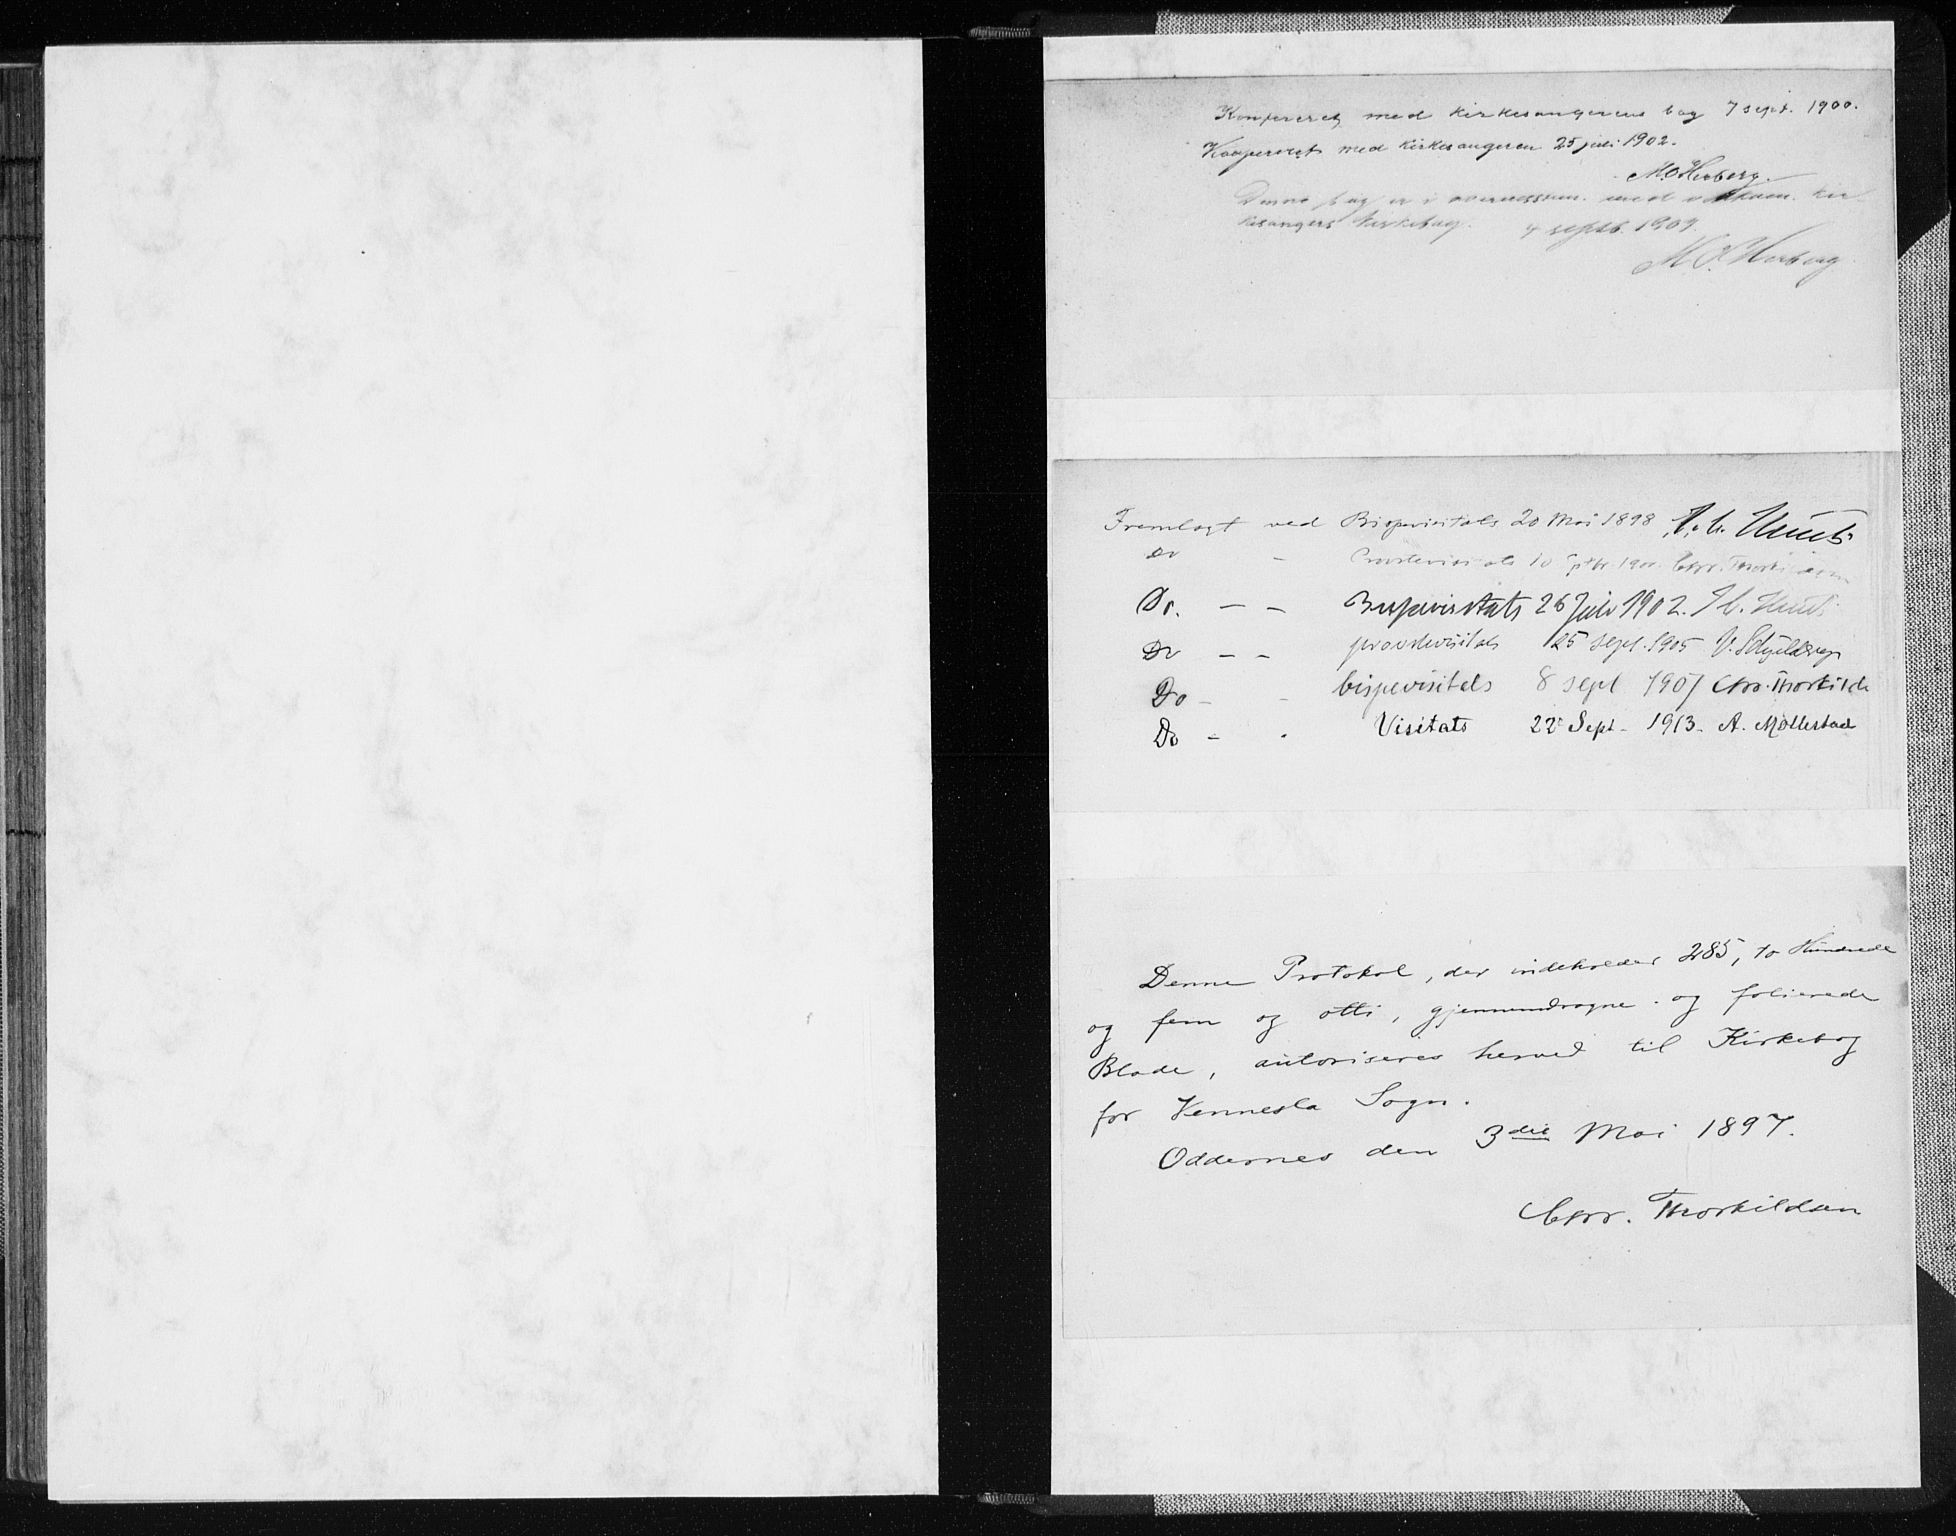 Konfereret med kirkesangerens bog 7 sept. 1900.
Konfereret med kirkesangeren 25 juli 1902.
M.O. Herberg.
Denne bog er i overensstem. med vedkom. kir-
kesangers kirkebog. 4 septb. 1907.
M.O. Herberg
Fremlagt ved Bispevisitats 20 Mai 1898
Do - Provstevisitats 10 Sptbr. 1900. Chr. Thorkildsen
Do. - - Bispevisitats 26 Juli 1902.
Do - - provstevisitats 25 sept. 1905 V. Schjelderup
Do - - bispevisitats 8 sept 1907 Chr. Thorkilds
Do - - Visitats 22 Sept. 1913. A. Møllerstad
Denne Protokol, der indeholder 285, to Hundrede
og fem og otti, gjennemdragne og folierede
Blade, autoriseres herved til Kirkebog
for Vennesla Sogn.
Oddernes den 3die Mai 1897.
Chr. Thorkildsen